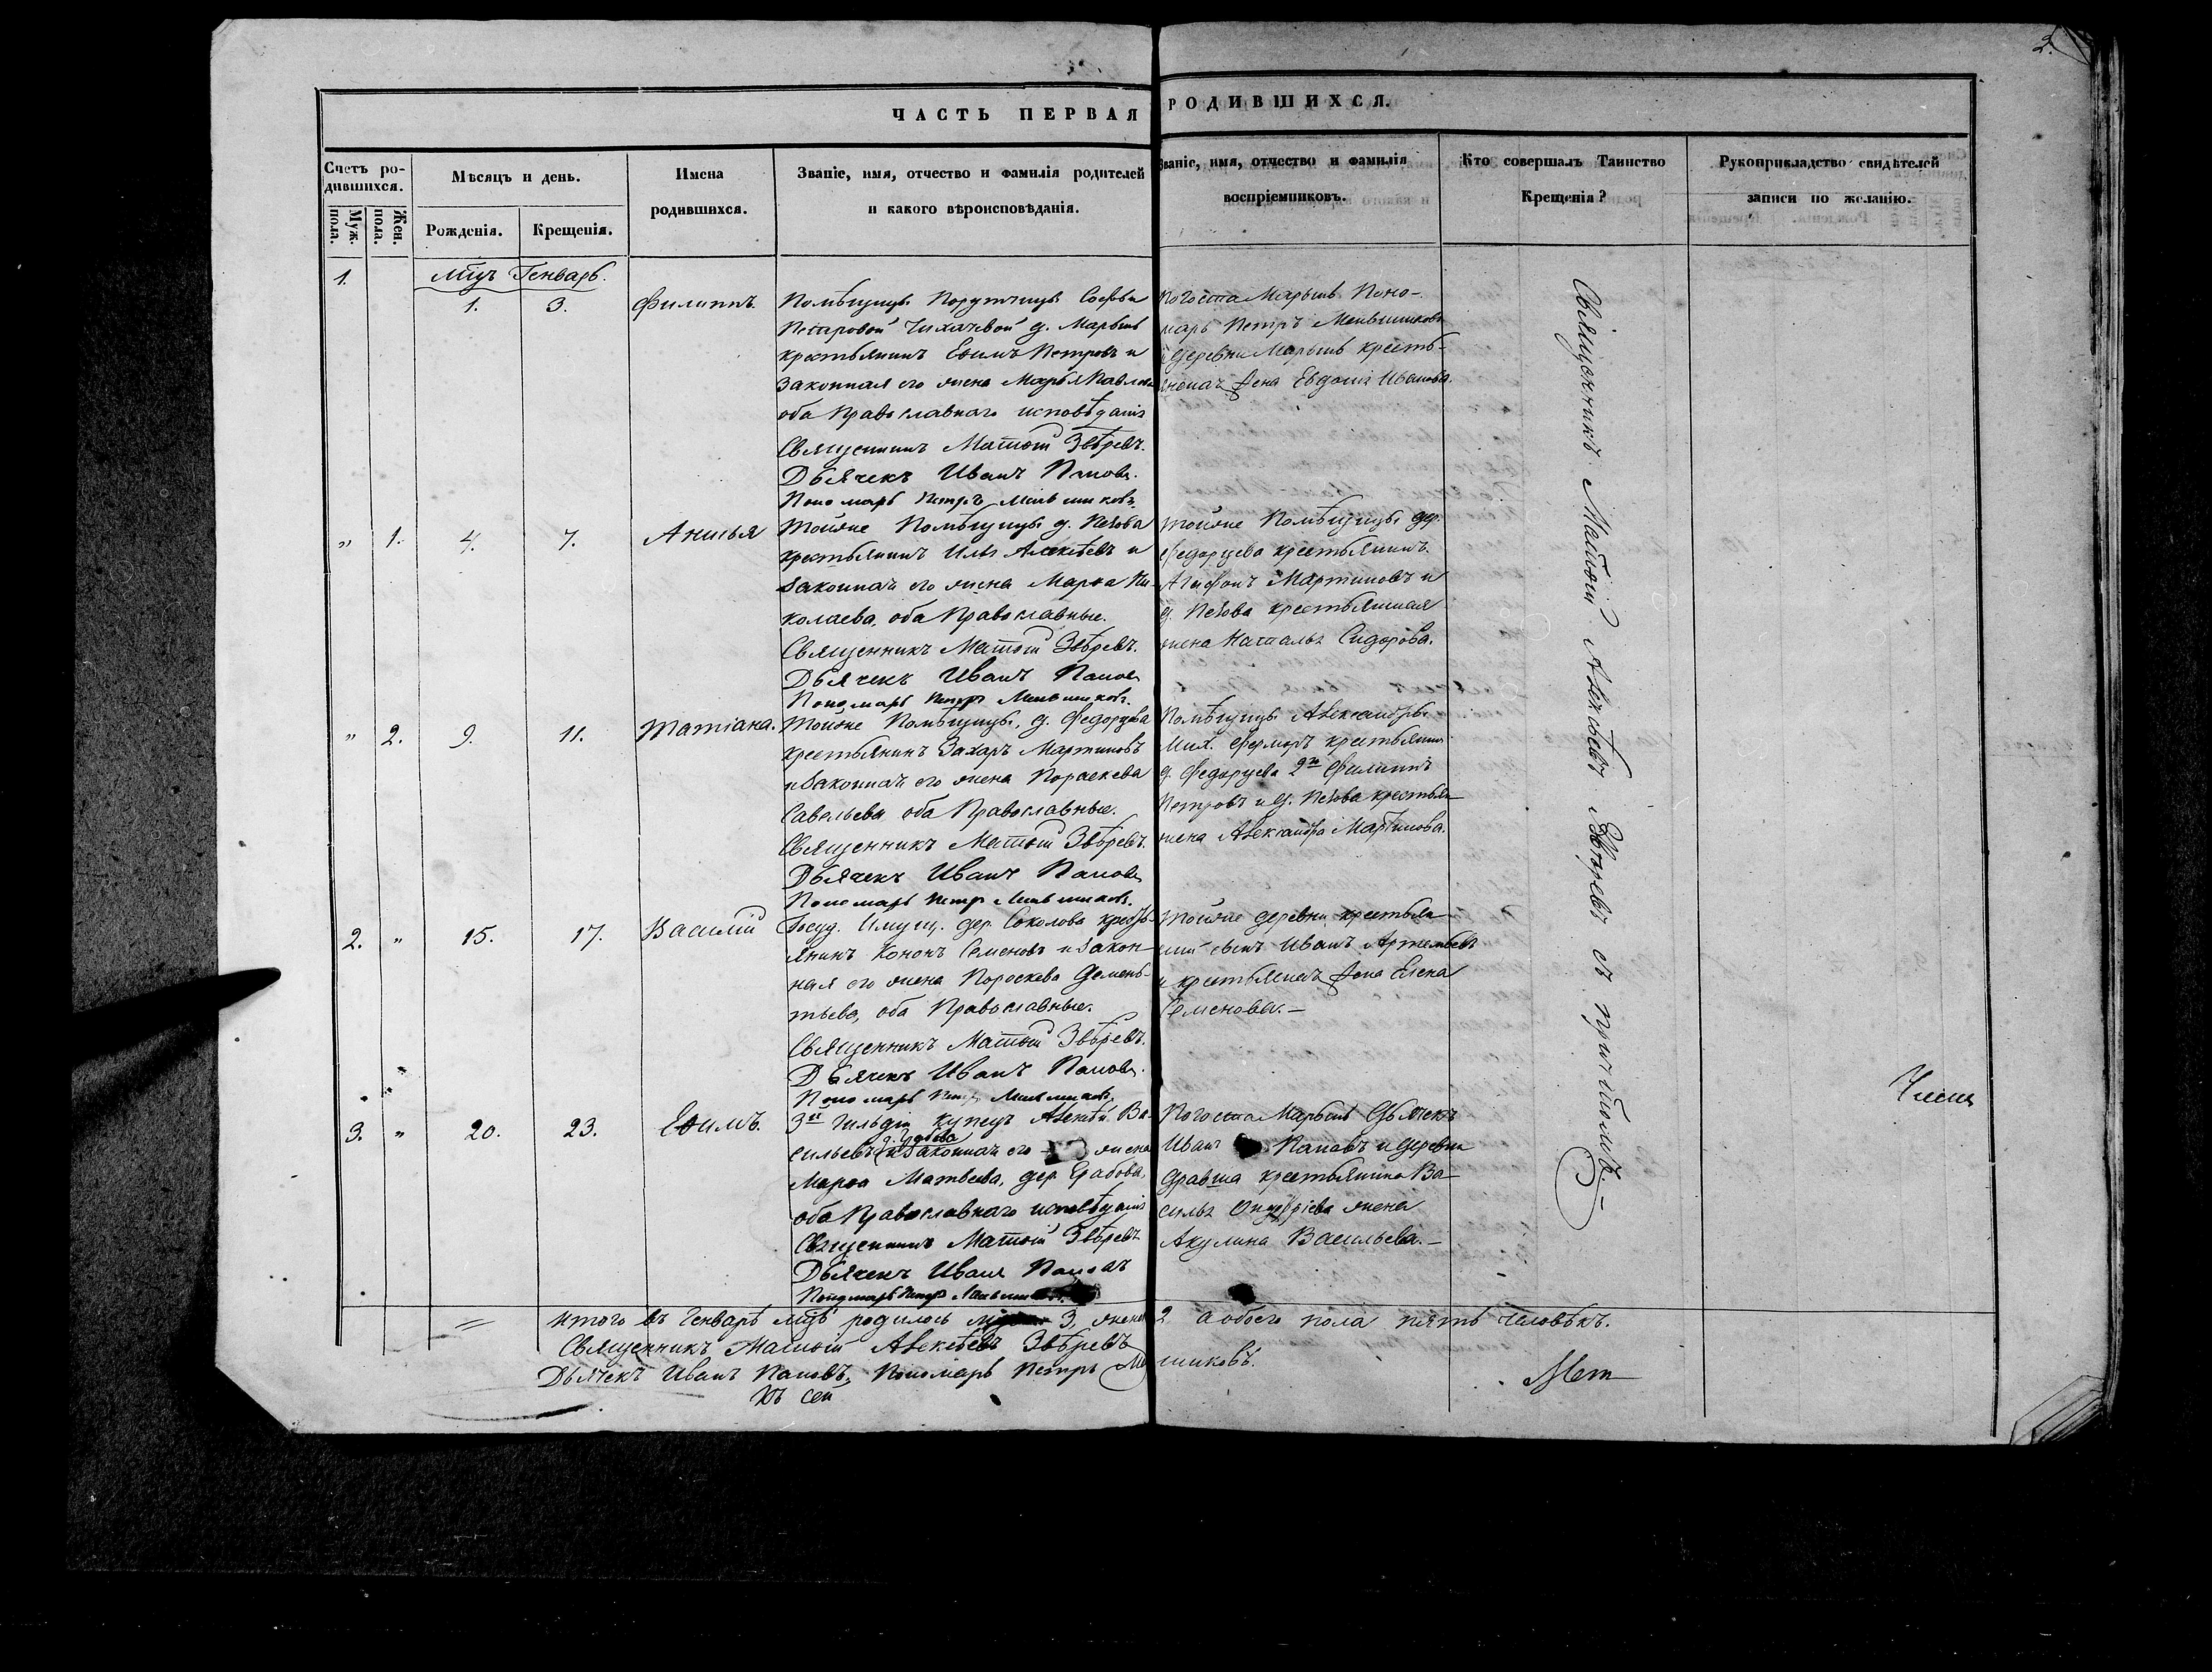 2.
ЧАСТЬ ПЕРВАЯ РОДИВШИХСЯ.
Счетъ ро-
дившихся.
Муж. пола.
Жен. пола.
Мѣсяцъ и день.
Рожденія.
Крещенія.
Имена
родившихся.
Званіе, имя, отчество и фамилія родителей
и какого вѣроисповѣданія.
Званіе, имя, отчество и фамилія
воспріемниковъ.
Кто совершалъ Таинство
Крещенія?
Рукоприкладство свидѣтелей
записи по желанію.
Мцъ Генварь.
1.
1. 3.
Филиппъ.
Помѣщицы Порутчицы Софьи
Петаровой Чихачевой д. Марынь
крестьянинъ Ефимъ Петровъ и
законная его жена Марья Павлова
оба Православнаго исповѣданія
Священникъ Матѳій Звѣревъ.
Дьячекъ Иванъ Пановъ.
Пономарь Петръ Меньшиковъ.
Погоста Марынь Поно-
марь Петръ Меньшиковъ
и деревни Марынь кресть-
жена Евдокія Иванова.
" 1. 4. 7.
Анисья
Тойже Помѣщицы д.
крестьянинъ Илья Алексѣевъ и
законная его жена Марѳа Ни-
колаева, оба Православные.
Священникъ Матѳій Звѣревъ.
Дьячекъ Иванъ Пановъ
Пономарь Петръ Меньшиковъ.
Тойже Помѣщицы дер.
Федорцева крестьянинъ
Агафонъ Мартиновъ и
д. крестьянная
жена Наталья Сидорова.
" 2. 9. 11.
Татіана.
Тойже Помѣщицы, д. Федорцева
крестьянинъ Захаръ Мартиновъ
и законная его жена Пораскева
Савельева оба Православные.
Священникъ Матѳій Звѣревъ.
Дьячекъ Иванъ Пановъ
Пономарь Петръ Меньшиковъ.
Помѣщицы Александры
Мих. Фермаръ крестьянинъ
д. Федорцева Филиппъ
Петровъ и д. крестьян
жена Александра Мартинова.
2. " 15. 17.
Василій
Госуд. Имущ. дер. Соколова кресть-
янинъ Кононъ Семеновъ и закон-
ная его жена Пораскева Демень-
тьева, оба Православные.
Священникъ Матѳій Звѣревъ.
Дьячекъ Иванъ Пановъ.
Пономарь Петръ Меньшиковъ.
Тойже деревни крестьян-
сынъ Иванъ Артемьевъ
и жена Елена
Семенова.—
3. " 20. 23.
Ефимъ.
3й гильдіи купецъ Алексѣй Ва-
сильевъ и законная его жена
Марѳа Матвеева, дер.
оба Православнаго исповѣданія
Священникъ Матѳій Звѣревъ
Дьячекъ Иванъ Пановъ
Пономарь Петръ
Погоста Марынь Дьячекъ
Иванъ Пановъ и деревни
крестьянина Ва-
силья жена
Акулина Васильева.—
Священникъ Матѳій Алексѣевъ Звѣревъ съ причтомъ.—
итого въ Генварѣ мцѣ родилось 3, женск 2 а обоего пола пять человѣкъ.
Священникъ Матѳій Алексѣевъ Звѣревъ
Дьячекъ Иванъ Пановъ. Пономарь Петръ Меньшиковъ.
Къ сей